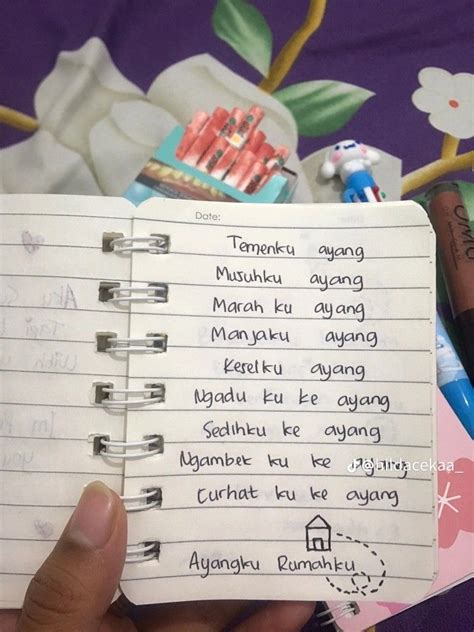 Date:
Temenku ayang
Musuhku ayang
Marah ku ayang
Manjaku ayang
Keselku ayang
Ngadu ku ke ayang
Sedihku ke ayang
Ngambek ku ke ayang
Curhat ku ke ayang
Ayangku Rumahku